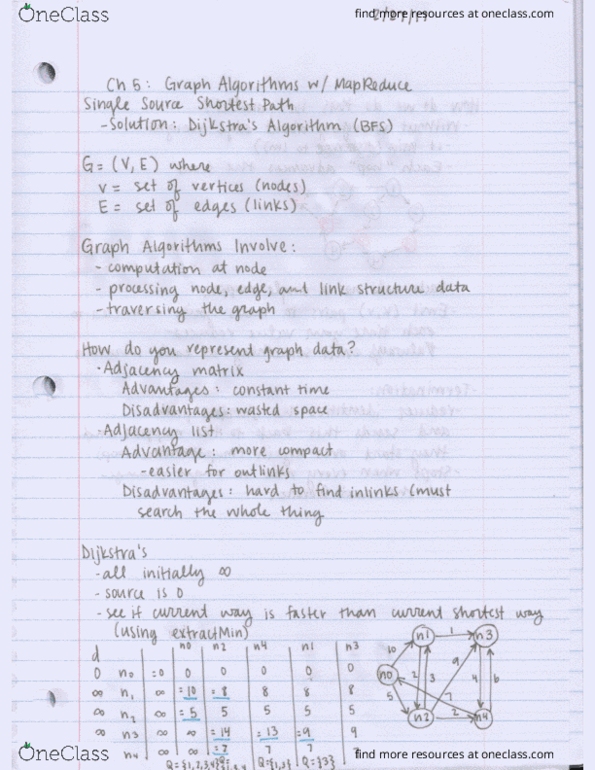 OneClass
find more resources at oneclass.com
Ch 5: Graph Algorithms w/ MapReduce
Single Source Shortest Path
-Solution: Dijkstra's Algorithm (BFS)
G= (V, E) where
V= set of vertices (nodes)
E= set of edges (links)
Graph Algorithms Involve:
- computation at node
- processing node, edge, and link structure data
- traversing the graph
How do you represent graph data?
• Adjacency matrix
Advantages: constant time
Disadvantages: wasted space
• Adjacency list
Advantage: more compact
-easier for outlinks
Disadvantages: hard to find inlinks (must
search the whole thing
Dijkstra's
- all initially ∞
- source is 0
- see if current way is faster than current shortest way
(using extractMin)
d n0 n2 n4 n1 n3
0 n0 =0 0 0 0 0 0
∞ n1 ∞ =10 =8 8 8 8
∞ n2 ∞ =5 5 5 5 5
∞ n3 ∞ ∞ =14 =13 =9 9
n4 ∞ ∞ =7 7 7
Q={1,2,3,4} Q={1,3} Q={3}
n1 1 n3
10 9
n0 2 3 4 6
5 7
n2 2 n4
OneClass
find more resources at oneclass.com